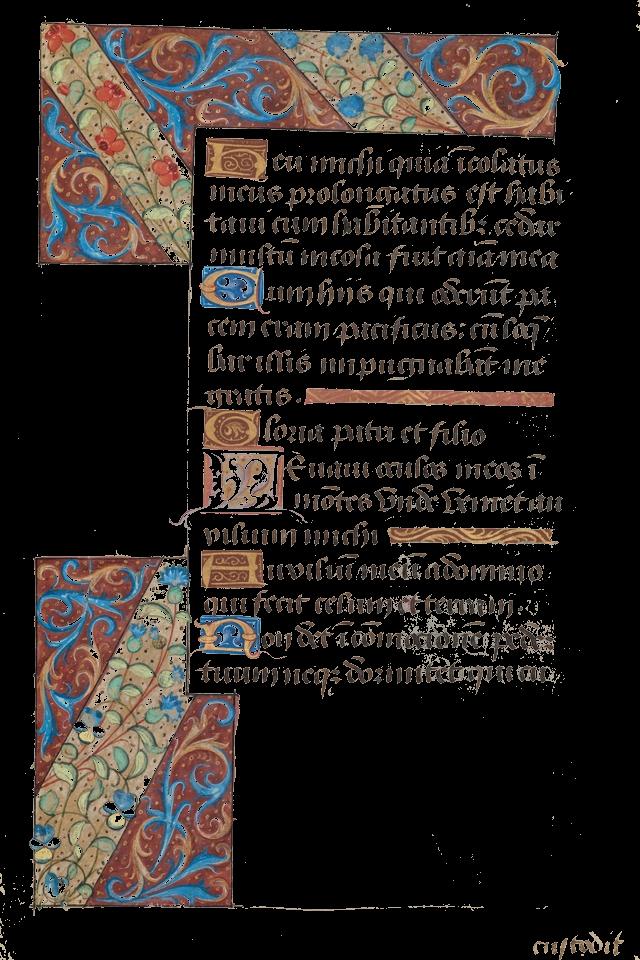 Heu michi quia īcolatus
meus prolongatus est habi
taui cum habitantibꝫ cedar
multū incola fuit aīa mea
Cum hiis qui oderūt pa
cem eram pacificus: cū loq̄
bar illis inpugnabāt me
gratis.
Gloria patri et filio
Leuaui oculos meos ī
mōtes vnde veniet au
xilium michi
Auxiliū meū a domino
qui fecit celum et terram.
Non det ī cōmotionē pedē
tuum neqꝫ dormitet qui cu
custodit